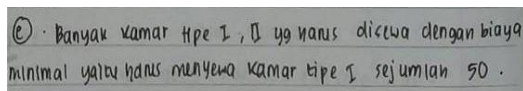 ⓔ. Banyak kamar tipe I, II yg harus disewa dengan biaya
minimal yaitu harus menyewa kamar tipe I sejumlah 50.